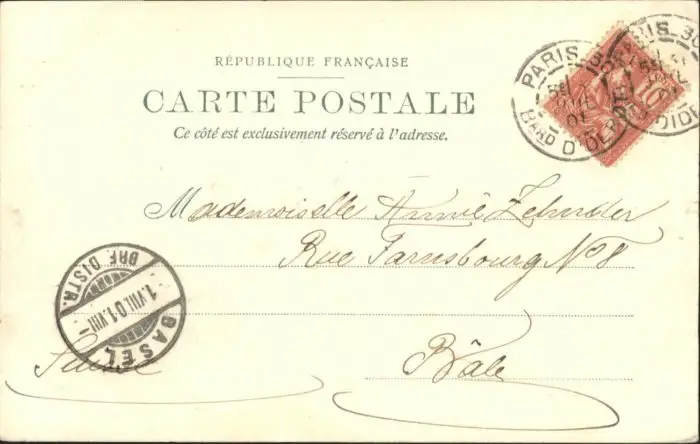 RÉPUBLIQUE FRANÇAISE
CARTE POSTALE
Ce côté est exclusivement réservé à l'adresse.
PARIS
PARIS
10
Mademoiselle Annie Zehnder
Rue Farnsbourg No 8
Bâle
Suisse
BASEL
1.VIII.01.VIII
BRF. DISTR.